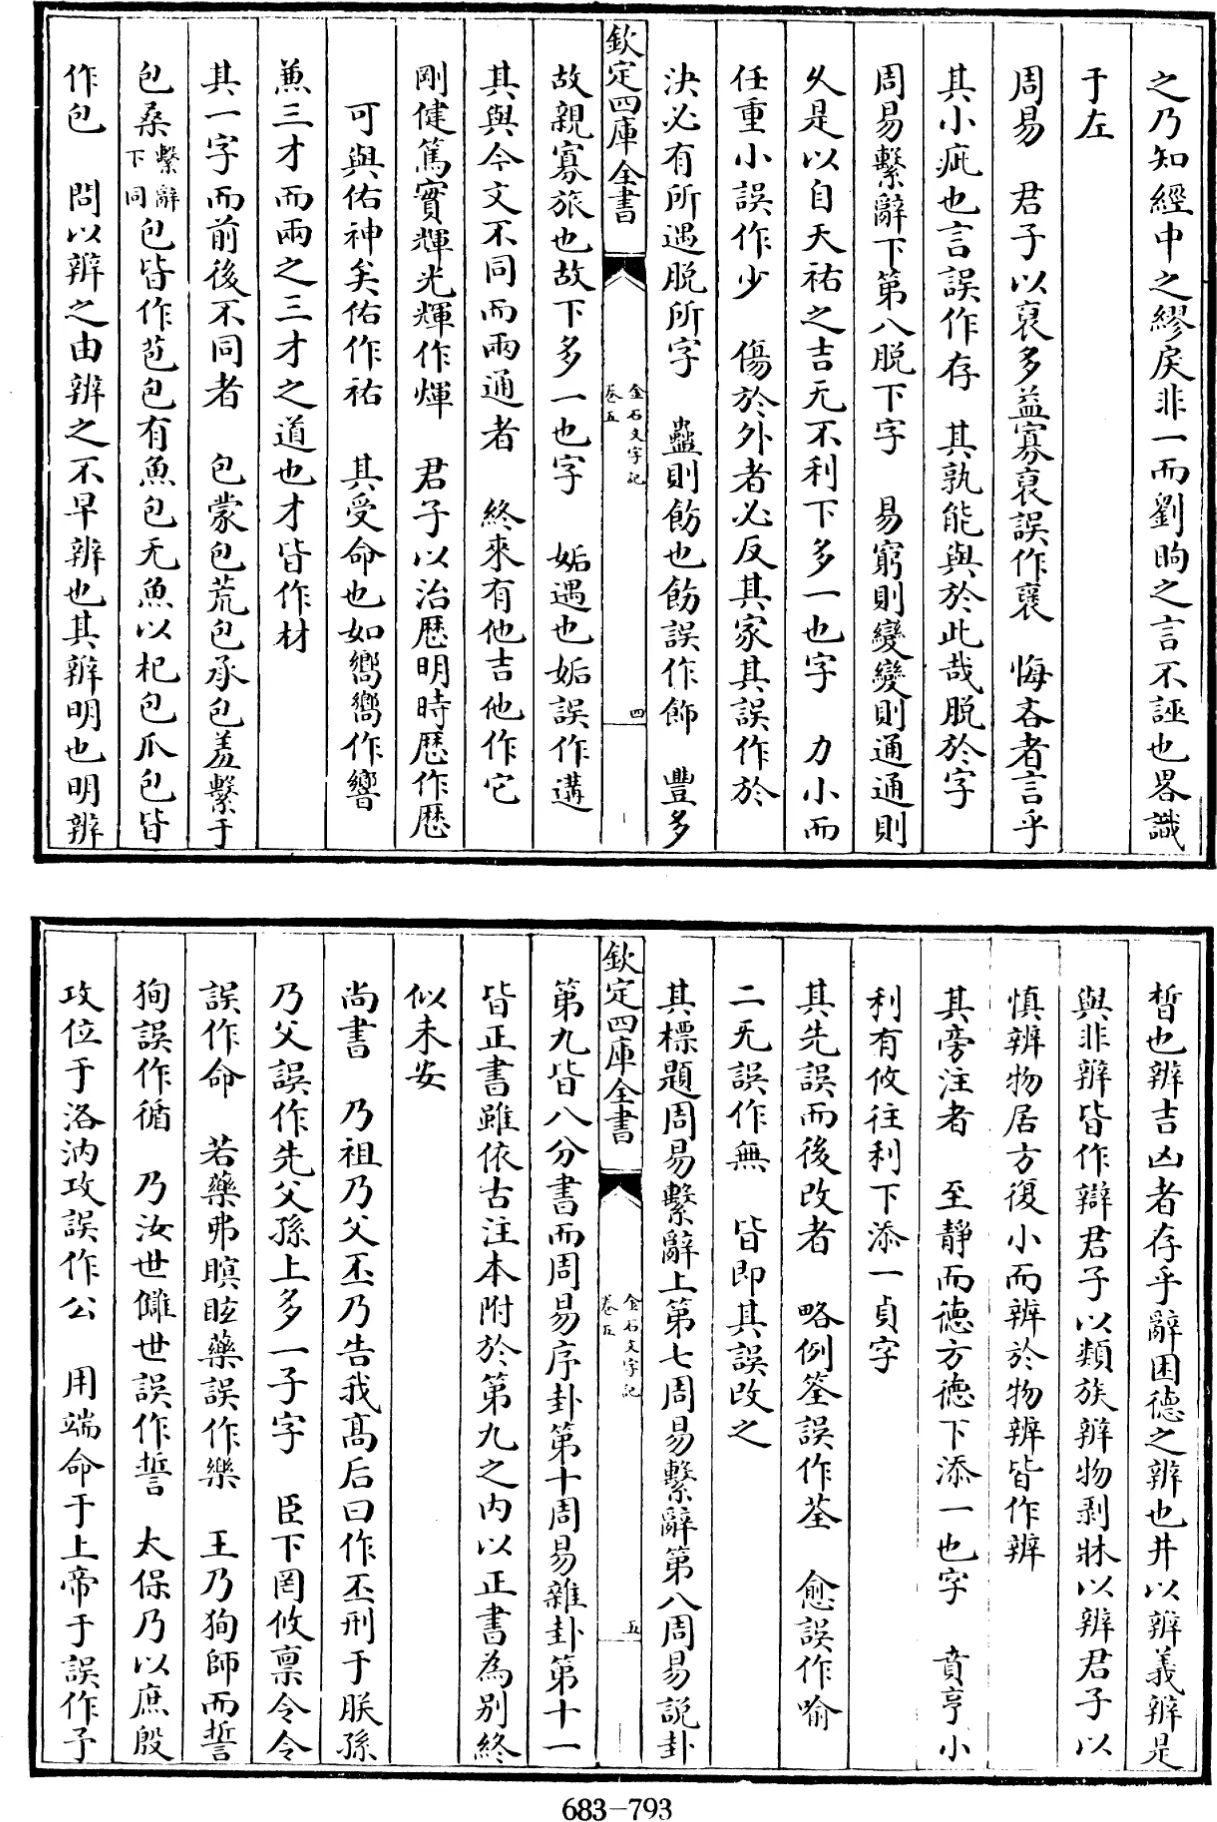 之乃知經中之繆戾非一而劉昫之言不誣也畧識
于左
周易　君子以裒多益寡裒誤作襃　悔吝者言乎
其小疵也言誤作存　其孰能與於此哉脱於字
周易繫辭下第八脱下字　易窮則變變則通通則
久是以自天祐之吉无不利下多一也字　力小而
任重小誤作少　傷於外者必反其家其誤作於
決必有所遇脱所字　蠱則飭也飭誤作飾　豐多
欽定四庫全書
金石文字記
卷五
四
故親寡旅也故下多一也字　姤遇也姤誤作遘
其與今文不同而兩通者　終來有他吉他作它
剛健篤實輝光輝作煇　君子以治厯明時厯作歷
可與佑神矣佑作祐　其受命也如嚮嚮作響
兼三才而兩之三才之道也才皆作材
其一字而前後不同者　包蒙包荒包承包羞繫于
包桑繫辭下同包皆作苞包有魚包无魚以杞包爪包皆
作包　問以辨之由辨之不早辨也其辨明也明辨
晢也辨吉凶者存乎辭困德之辨也井以辨義辨是
與非辨皆作辯君子以類族辨物剥牀以辨君子以
慎辨物居方復小而辨於物辨皆作辨
其旁注者　至靜而德方德下添一也字　賁亨小
利有攸往利下添一貞字
其先誤而後改者　略例筌誤作荃　愈誤作喻
二无誤作無　皆即其誤改之
其標題周易繫辭上第七周易繫辭第八周易説卦
欽定四庫全書
金石文字記
卷五
五
第九皆八分書而周易序卦第十周易雜卦第十一
皆正書雖依古注本附於第九之内以正書為別終
似未安
尚書　乃祖乃父丕乃告我髙后曰作丕刑于朕孫
乃父誤作先父孫上多一子字　臣下罔攸禀令令
誤作命　若藥弗瞑眩藥誤作樂　王乃狥師而誓
狥誤作循　乃汝世讎世誤作誓　太保乃以庶殷
攻位于洛汭攻誤作公　用端命于上帝于誤作子
683-793